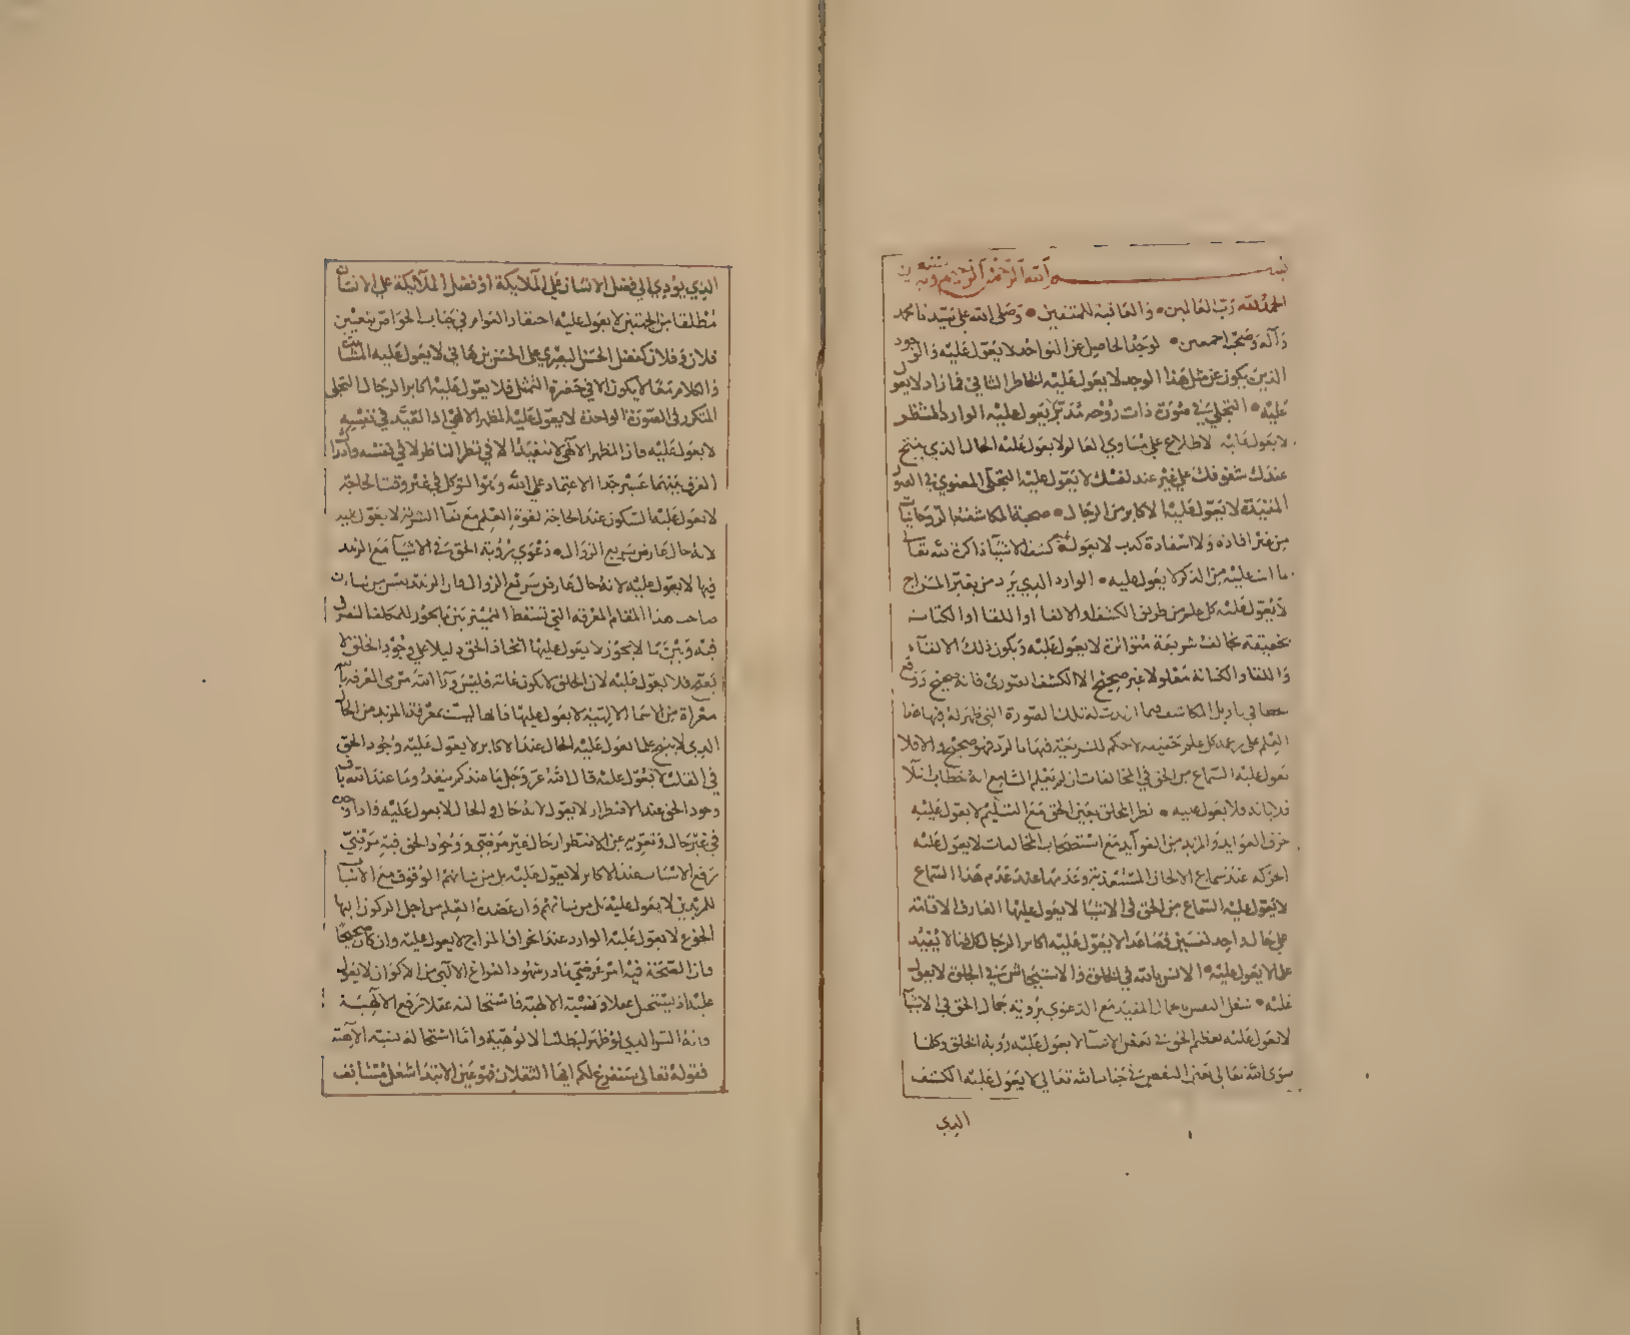 بسم الله الرحمن الرحيم وبه
الحمد لله رب العالمين والعاقبة للمتقين وصلى الله على سيدنا محمد
وآله وصحبه اجمعين لوجد الحاصل عن التواجد لا يعول عليه والوجود
الذي يكون عن مثل هذا الوجد لا يعول عليه الخاطر الثاني فما زاد لا يعول
عليه التجلي في صورة ذات روح مدبرة لا يعول عليه الوارد المنتظر
لا يعول عليه الاطلاع على مساوي العالم لا يعول عليه الحال الذي ينتج
عندك شفوفك على غير عند نفسك لا يعول عليه التجلي المعنوي في الصور
المقيدة لا يعول عليه الاكابر من الرجال صحبة المكاشف الروحانيات
من غير افادة ولا استفادة لا يعول كشف الاشيا ذاكرة لله تعالى
ما انت عليه من الذكر لا يعول عليه الوارد الذي يرد من تغير المزاج
لا يعول عليه كل علم من طريق الكشف والالقا او اللقا او الكتابة
بحقيقة تخالف شريعة متواترة لا يعول عليه ويكون ذلك الالقاء
واللقا والكتابة معلولا غير صحيح الا الكشف الصوري فانه صحيح ووقع
في تاويل المكاشف فيما اريدت له تلك الصورة التي ظهر له فيها هذا
العلم على كل علم حقيقة لا حكم للشريعة فيها بالرد فهو صحيح والا فلا
يعول عليه السماع من الحق في المخالفات ان لم يعلم السامع انه خطاب ابتلا
فلا يعول عليه نظر الخلق بعين الحق مع التسليم لا يعول عليه
خرق العوايد والمزيد من الفوايد مع استصحاب المخالفات لا يعول عليه
الحركة عند سماع الالحان المستعذبة وعدمها عند عدم هذا السماع
لا يعول عليه السماع من الحق في الاشيا لا يعول عليها العارف الاقامة
على حال واحد نفسين فصاعدا لا يعول عليه اكابر الرجال كل فنا لا يفيد
علما لا يعول عليه الانس بالله في الخلوة والاستيحاش في الجلوة لا يعول
عليه المقيد مع الدعوى برؤية جمال الحق في الاشيا
لا يعول عليه تعظيم الحق في بعض الاشيا لا يعول عليه رؤية الخلق وكلما
سوى الله تعالى بعين النقص في جناب الله تعالى لا يعول عليه الكشف
الذي
الذي يودي الى فضل الانسان على الملايكة او فضل الملايكة على الانسان
مطلقا من الجهتين لا يعول عليه احتقار العوام في جناب الخواص بتعيين
فلان وفلان كفضل الحسن البصري على الحسن بن هاني لا يعول عليه المشاهدة
والكلام معا لا يكون الا في حضرة التمثل فلا يعول عليه اكابر الرجال التجلي
المتكرر في الصورة الواحدة لا يعول عليه المظهر الالهي اذا تقيد في نفسه
لا يعول عليه فان المظهر الالهي لا يتقيد الا في نظر الناظر لا في نفسه وادراك
الفرق بينهما عسير جدا الاعتماد على الله وهو التوكل في غير وقت الحاجة
لا يعول عليه السكون عند الحاجة لقوة العلم مع بقا البشرية لا يعول عليه
لانه حال عارض سريع الزوال دعوى رؤية الحق في الاشيا مع الزهد
فيها لا يعول عليه لانه حال عارض سريع الزوال فان الزهد ليس من شان
صاحب هذا المقام المعرفة التي تسقط التمييز بين ما يجوز للمكلف التصرف
فيه وبين ما لا يجوز لا يعول عليها اتخاذ الحق دليلا على وجود الخلق لا
فلا يعول عليه لان الخلق لا يكون غاية فليس وراء الله مرمى المعرفة بالله
معراة من الاسما الالهية لا يعول عليها فانها ليست بمعرفة المزيد من الحال
الذي لا ينتج علما لا يعول عليه الحال عند الاكابر لا يعول عليه وجود الحق
في القلب لا يعول عليه قال الله عز وجل ما عندكم ينفد وما عند الله باق
وجود الحق عند الاضطرار لا يعول لانه حال والحال لا يعول عليه فاذا وجد
في غير حال وتعريه عن الاضطرار حال غير مرضي ووجود الحق فيه مرضي
رفع الاسباب عند الاكابر لا يعول عليه بل من شانهم الوقوف مع الاسباب
للمريدين لا يعول عليه بل من شانهم وان عضده العلم من اجل الركون اليها
الجوع لا يعول عليه الوارد عند انحراف المزاج لا يعول عليه وان كان صحيحا
فان الصحة فيه امر عرضي نادر شهود الفراغ الالهي من الاكوان لا يعول
عليه اذ يستحيل عقلا ونسبة الالهية فاستحالته عقلا ترفع الالهية
وانه السر الذي لو ظهر لبطلت الالوهية واما استحالته نسبة الالهية
فقوله تعالى سنفرغ لكم ايها الثقلان فهو عين الابتدا شغل مستانف